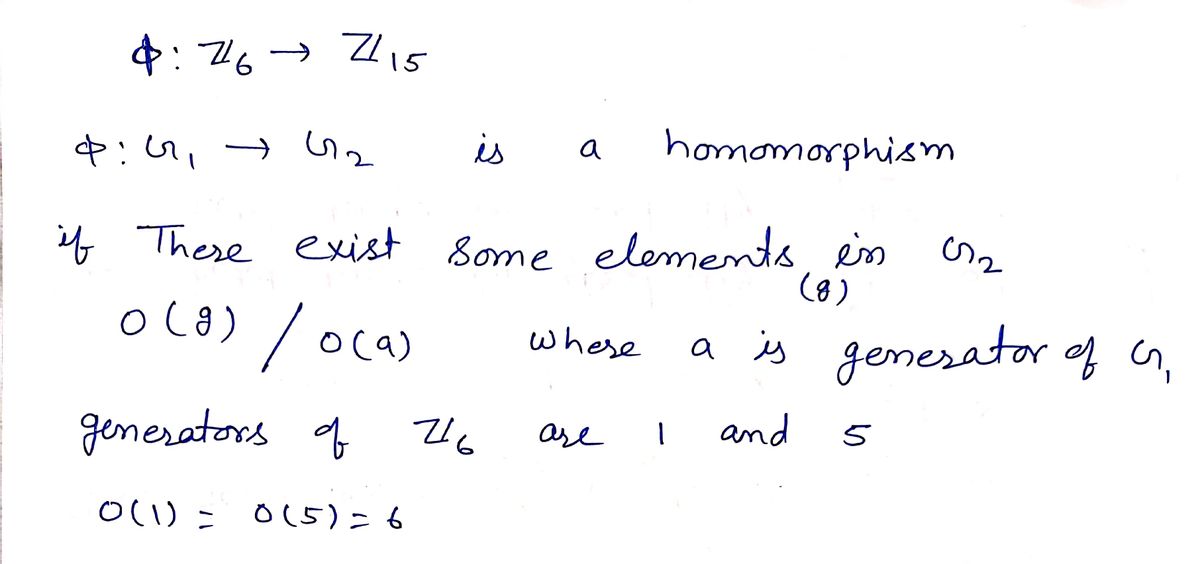 ϕ: ℤ₆ → ℤ₁₅
ϕ: G₁ → G₂ is a homomorphism
if There exist some elements (g) in G₂
O(g) / O(a) where a is generator of G₁
generators of ℤ₆ are 1 and 5
O(1) = O(5) = 6